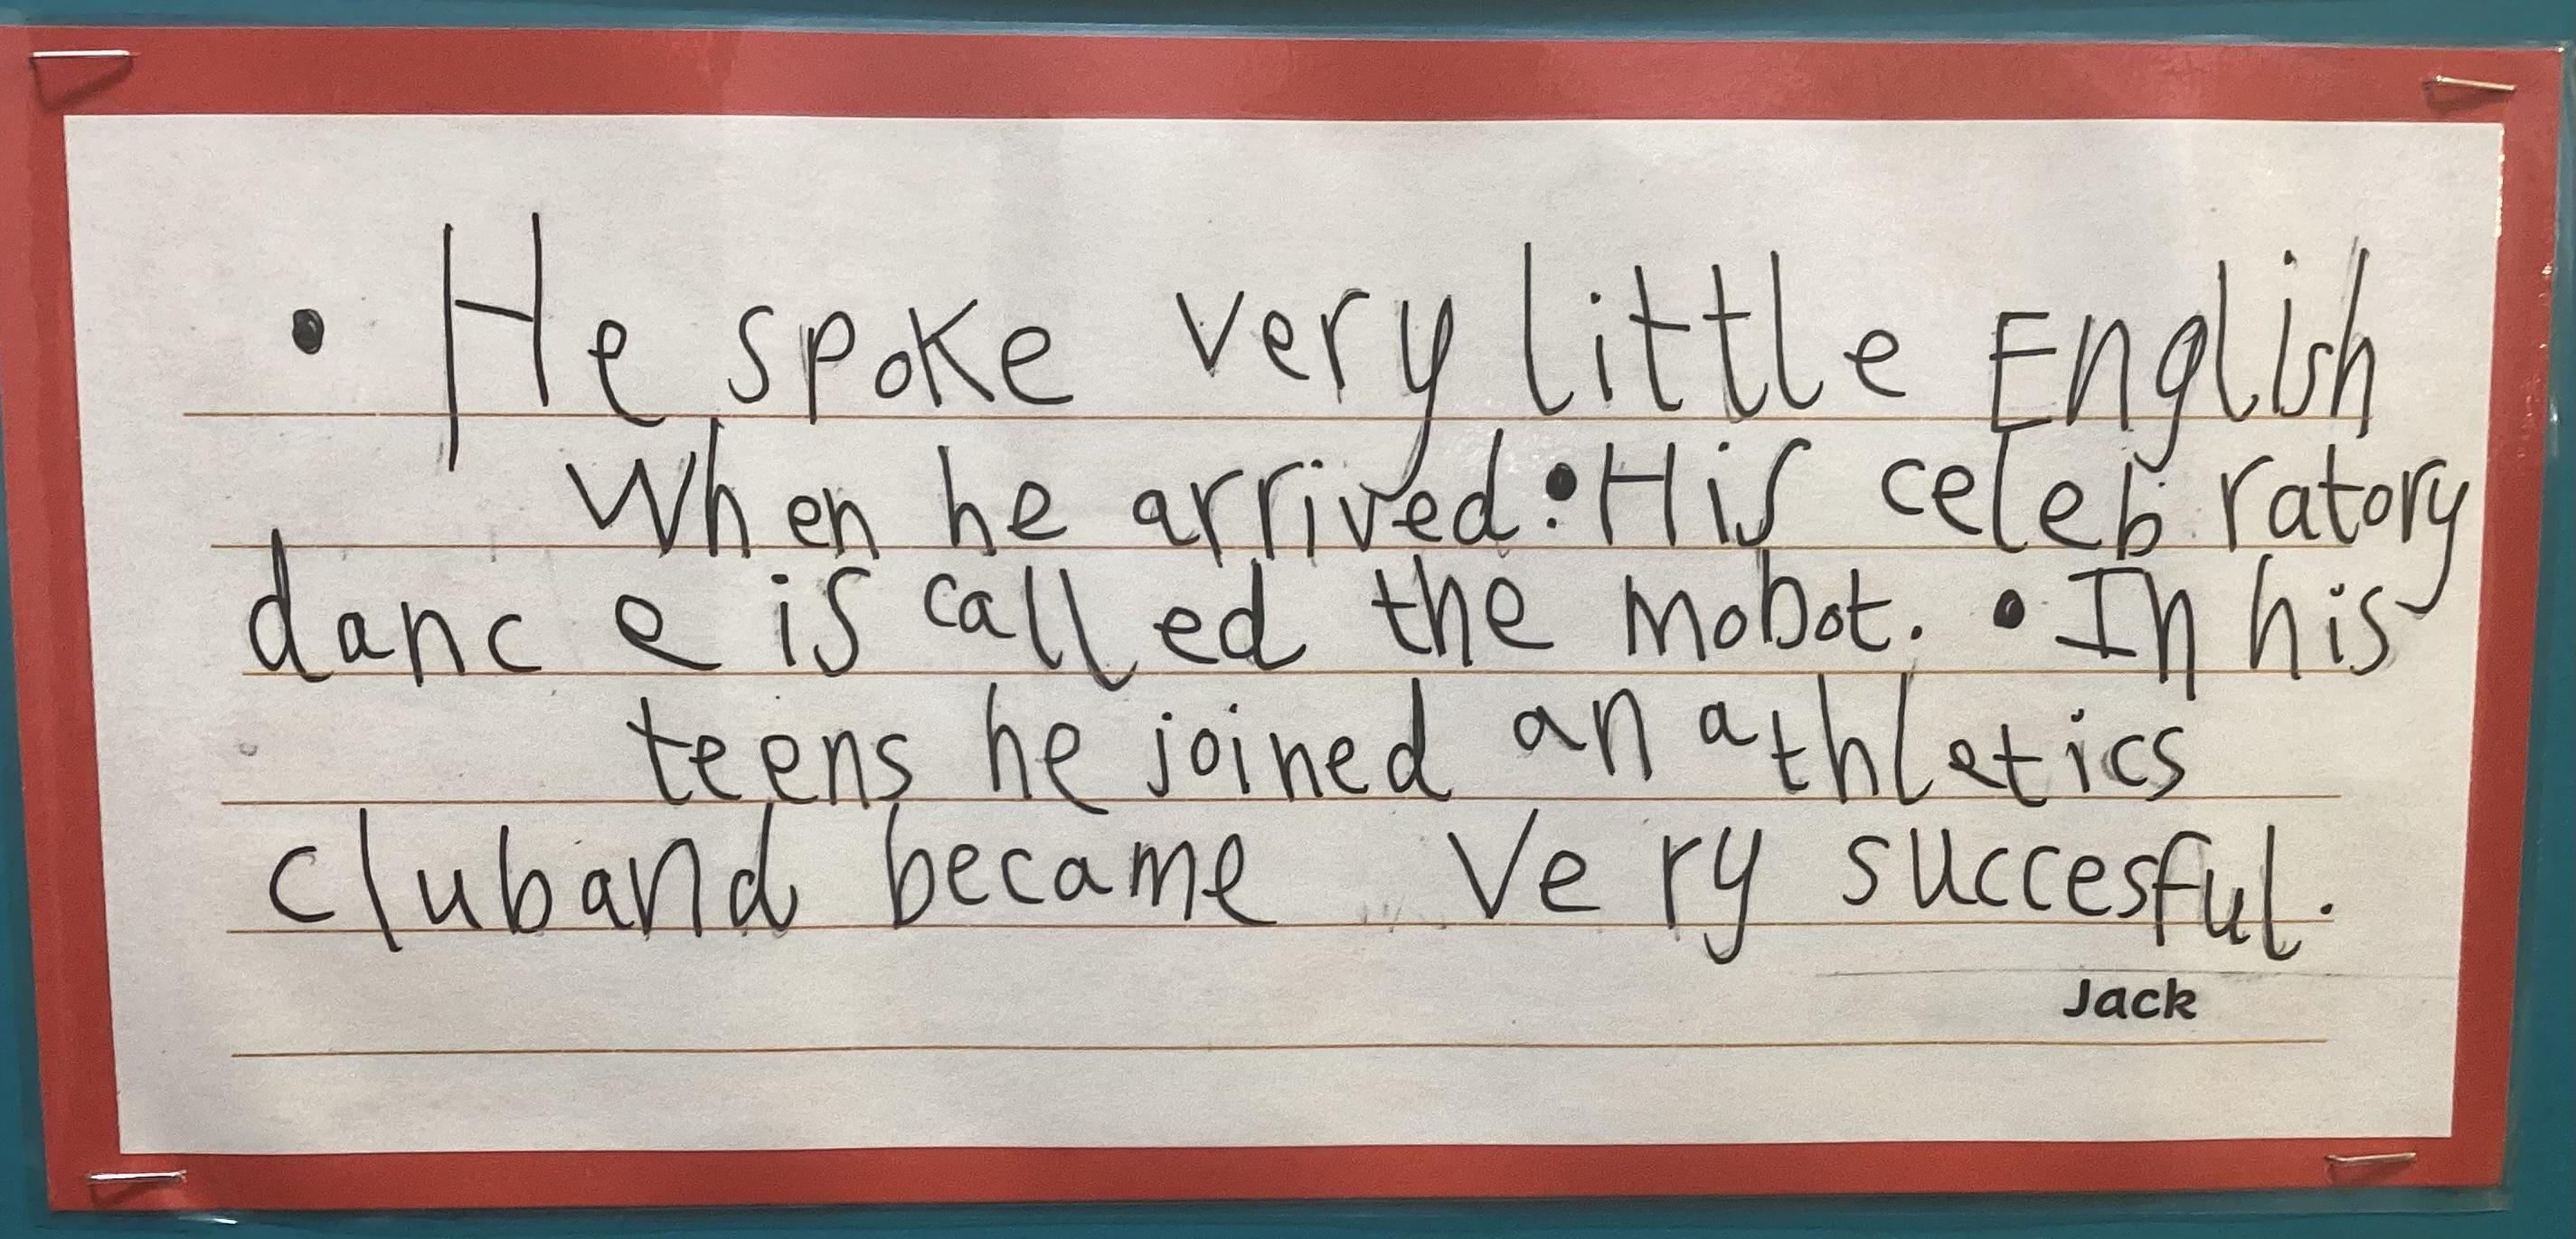 • He spoke very little English
When he arrived. • His celebratory
dance is called the mobot. • In his
teens he joined an athletics
club and became very succesful.
Jack